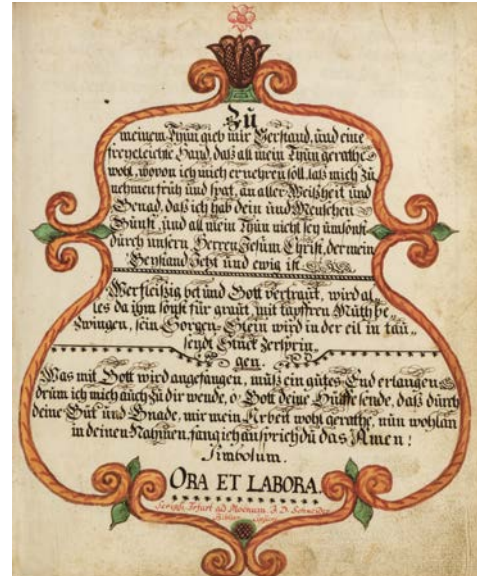 Zu
meinem Thun gieb mir Verstand, und eine
freyeleichte Hand, daß all mein Thun gerathe
wohl, wovon ich mich ernehren soll, laß mich zu
nehmen früh und spat, an aller Weißheit und
Genad, daß ich hab dein und Menschen
Gunst, und all mein Thun nicht sey umsonst
durch unsern Herren Jesum Christ, der mein
Beystand Jetzt und ewig ist.
Wer fleißig bet und Gott vertraut, wird al
les da ihm sonst für graut, mit tapffren Muth be
zwingen, sein Sorgen-Stein wird in der eil in tau„
sendt Stück zersprin„
gen.
Was mit Gott wird angefangen, muß ein gutes End erlangen
drum ich mich auch zu dir wende, o Gott deine Hülffe sende, daß durch
deine Güt und Gnade, mir mein Arbeit wohl gerathe, nun wohlan
in deinen Nahmen, fang ich an sprich du das Amen!
Simbolum.
ORA ET LABORA.
Scripsi, ad Moenum J. D. Schneider